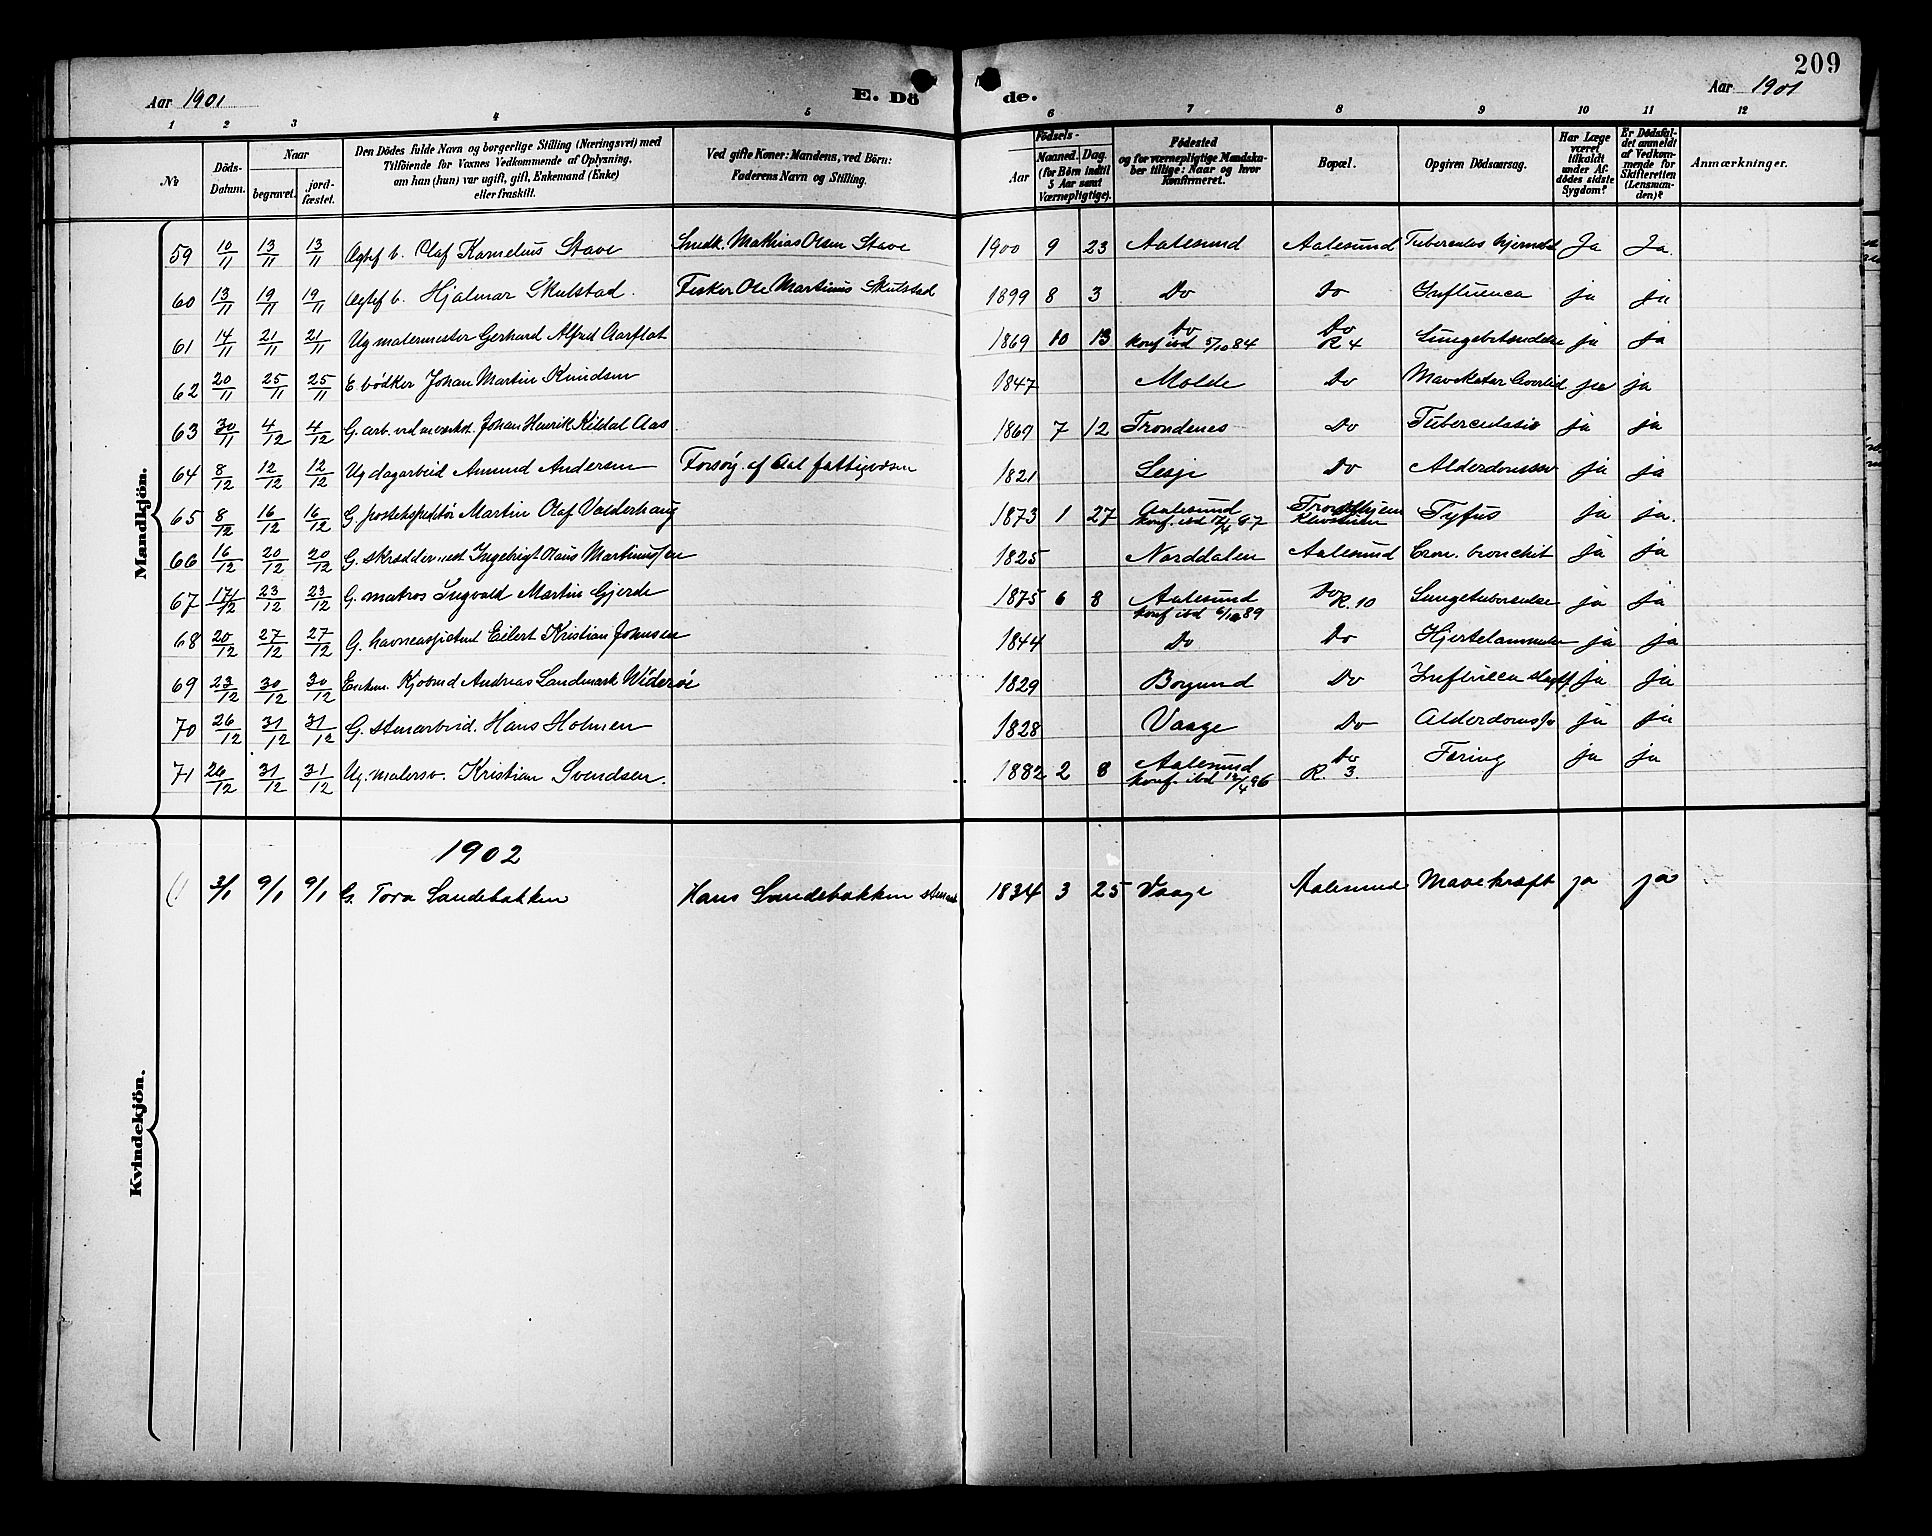 209
Aar 1901
E. Dö
de.
Aar 1901
1 2 3 4 5 6 7 8 9 10 11 12
№
Döds-Datum.
Naar
begravet.
jordfæstet.
Den Dödes fulde Navn og borgerlige Stilling (Næringsvei) med
Tilföiende for Voxnes Vedkommende af Oplysning,
om han (hun) var ugift, gift, Enkemand (Enke)
eller fraskilt.
Ved gifte Koner: Mandens, ved Börn:
Faderens Navn og Stilling.
Födsels-
Aar
Maaned. Dag.
(for Börn indtil
5 Aar samt
Værnepligtige).
Födested
og for værnepligtige Mandska-
ber tillige: Naar og hvor
Konfirmeret.
Bopæl.
Opgiven Dödsaarsag.
Har Læge
været
tilkaldt
under Af-
dödes sidste
Sygdom?
Er Dödsfal-
det anmeldt
af Vedkom-
mende for
Skifteretten
(Lensman-
den)?
Anmærkninger.
Mandkjön.
59 10/11 13/11 13/11 Ægtef b. Olaf Kornelius Stave Snedk. Mathias Olsen Stave 1900 9 23 Aalesund Aalesund Tuberculos Ja Ja.
60 13/11 19/11 19/11 Ægtef b. Hjalmar Skulstad. Fisker Ole Martinus Skulstad 1899 8 3 Do Do Influenca ja ja
61 14/11 21/11 21/11 Ug malermester Gerhard Alfred Aarflot 1869 10 13 Do Do Lungebetændelse ja ja
konf ibd 5/10 84 R 4
62 20/11 25/11 25/11 E bödker Johan Martin Knudsen 1847 Molde Do Mavekatar ja ja
63 30/11 4/12 4/12 G. arb. Johan Henrik Kildal Aas 1869 7 12 Trondenes Do Tuberculosis ja ja
64 8/12 12/12 12/12 Ug dagarbeid Amund Andersen Forsørg. af Aal fattigvæsen 1821 Lesje Do Alderdomssv ja ja
65 8/12 16/12 16/12 G postekspeditör Martin Olaf Valderhaug 1873 1 27 Aalesund Trondhjem Tyfus ja ja.
66 16/12 20/12 20/12 G. skræddermest Ingebrigt Martinussen 1825 Norddalen Aalesund Cron. bronchit ja ja
67 17/12 23/12 23/12 G. matros Ingvald Martin Gjerde 1875 6 8 Aalesund Do R. 10 Lungetuberculse ja ja
konf ibd 6/10 89
68 20/12 27/12 27/12 G. havneassistent Eilert Kristian Johnsen 1844 Do Do Hjertelammelse ja ja
69 23/12 30/12 30/12 Enkem. Kjøbmd Andreas Landmark Widerøe 1829 Borgund Do Influenca ja ja
70 26/12 31/12 31/12 G. stenarbeid. Hans Holmen 1828 Vaage Do Alderdomssv ja ja
71 26/12 31/12 31/12 Ug. malersv. Kristian Svendsen. 1882 2 8 Aalesund Do Tæring ja ja
konf ibd 12/4 96 R. 3.
Kvindekjön.
1902
3/1 9/1 9/1 G. Tora Sandebakken Hans Sandebakken 1834 3 25 Vaage Aalesund Mavekræft ja ja